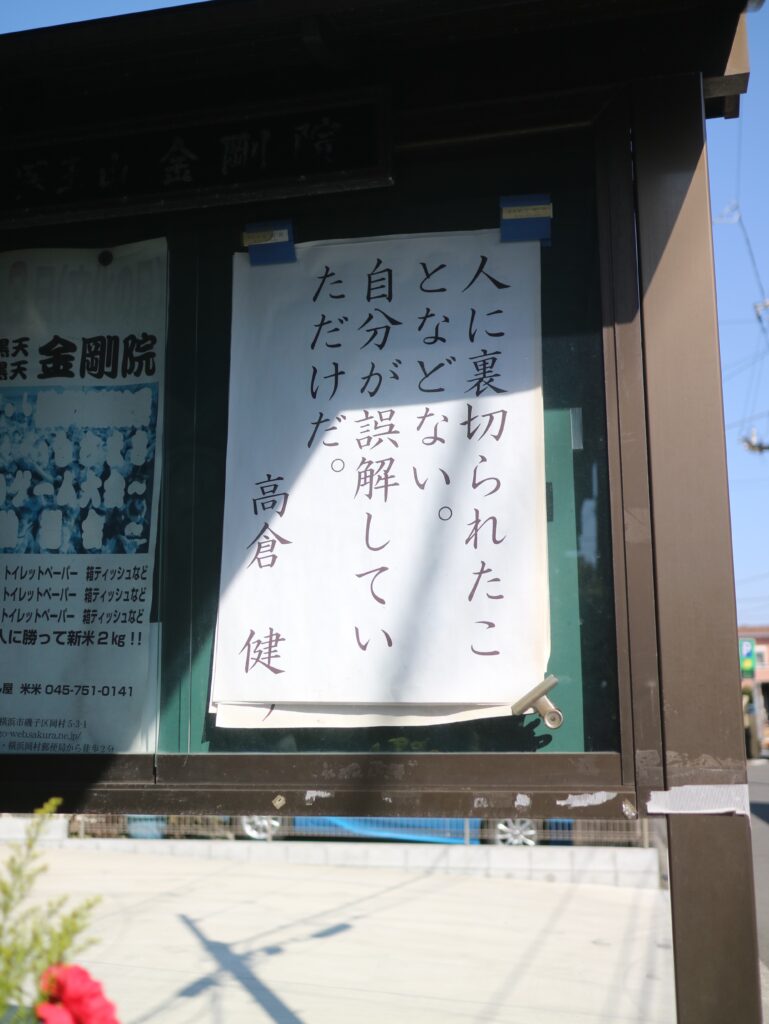 金剛院
人に裏切られたこ
となどない。
自分が誤解してい
ただけだ。
高倉 健
黒天
黒天
金剛院
トイレットペーパー 箱ティッシュなど
トイレットペーパー 箱ティッシュなど
トイレットペーパー 箱ティッシュなど
人に勝って新米2kg!!
屋 米米 045-751-0141
横浜市磯子区岡村5-3-1
go-web.sakura.ne.jp/
・横浜岡村郵便局から徒歩2分
P